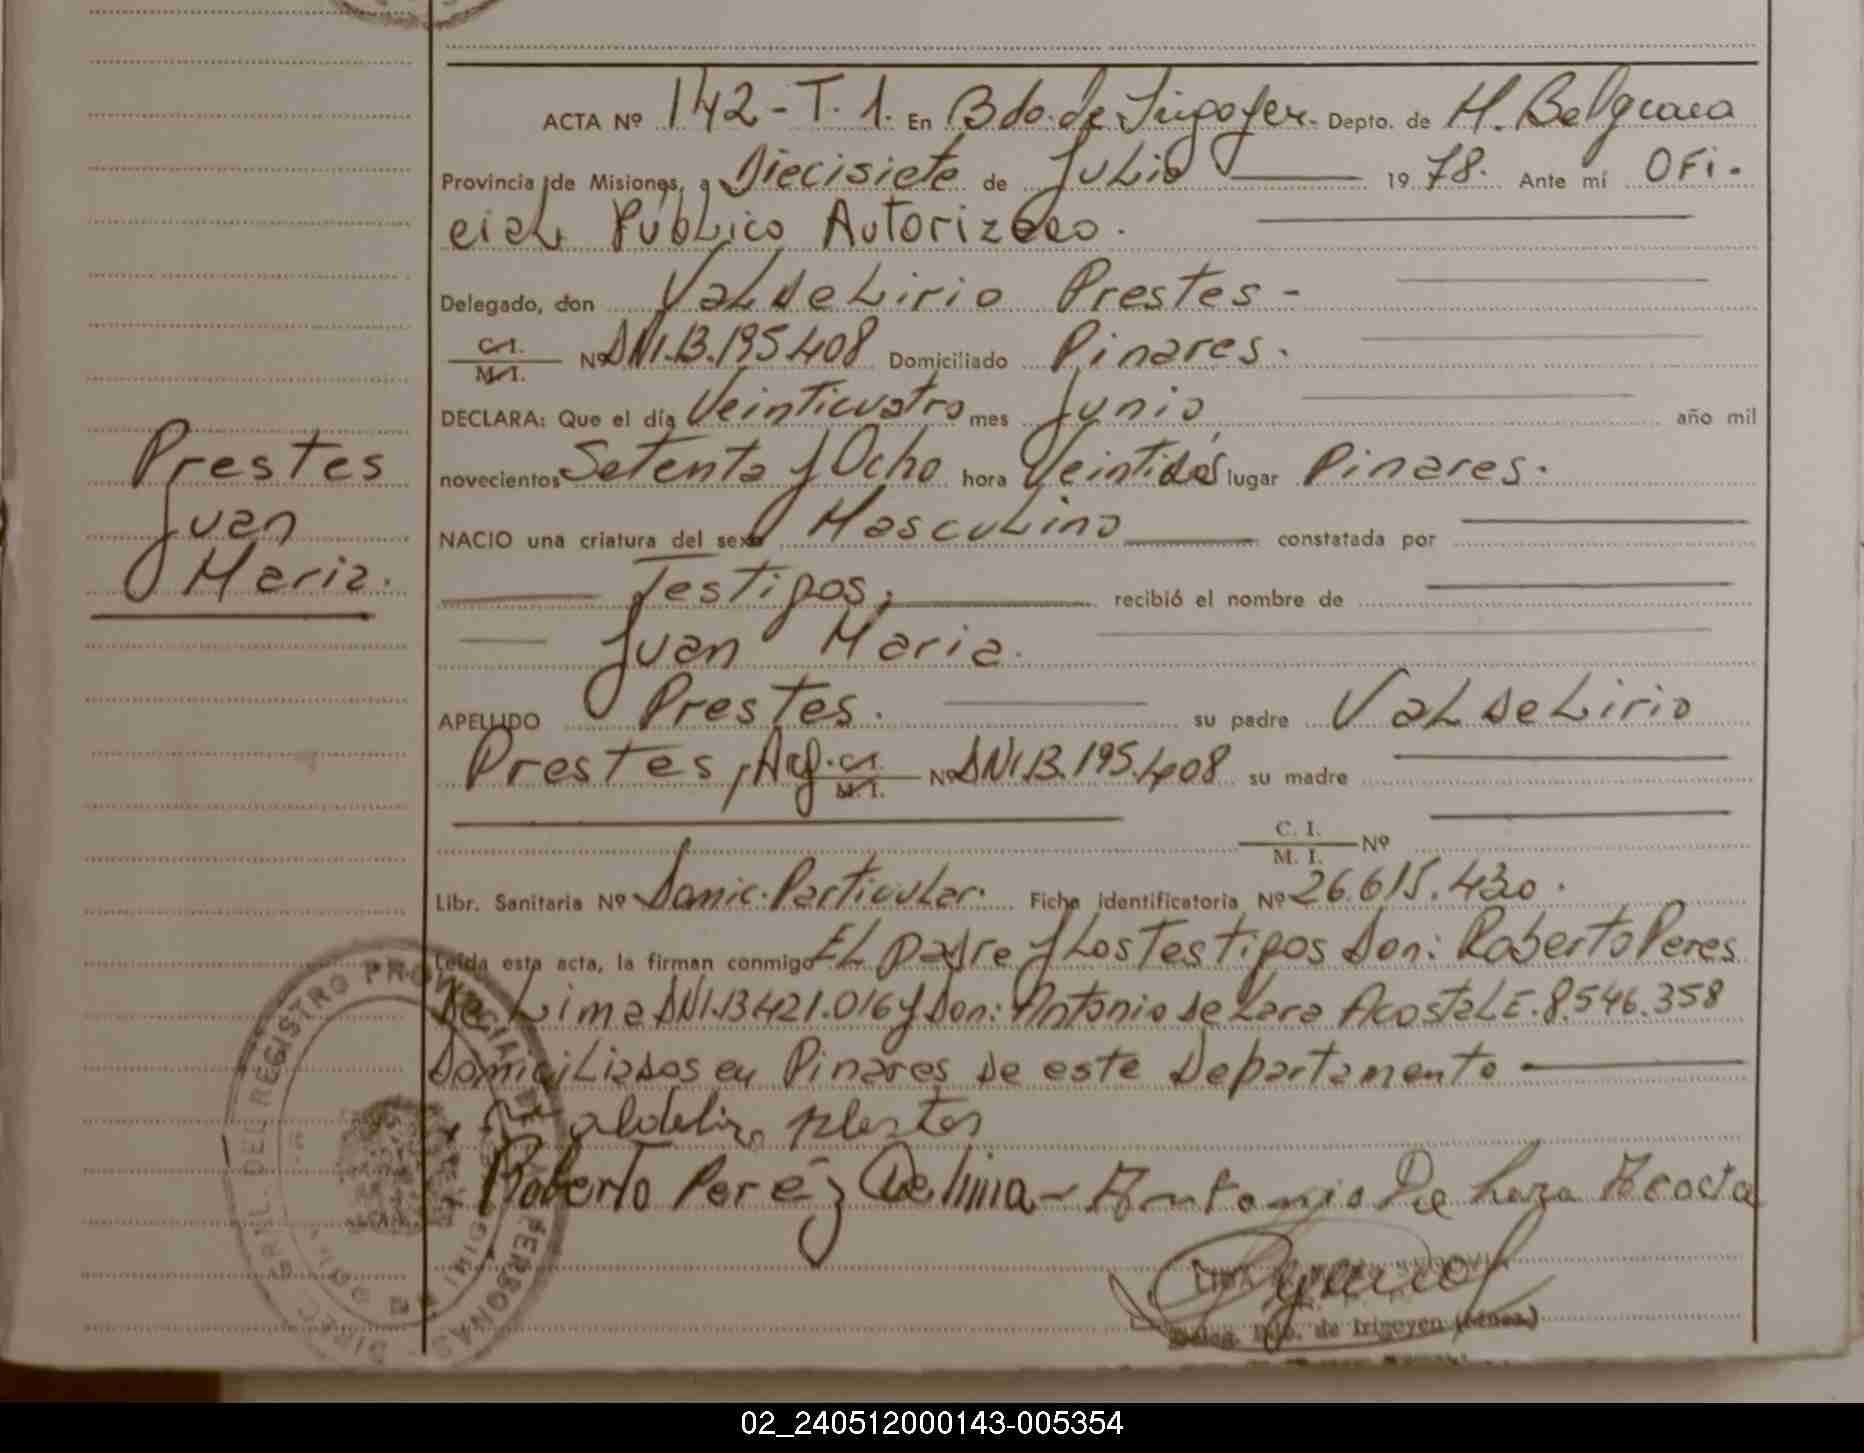 ACTA Nº 142-T.1. En Bdo. de Irigoyen- Depto. de M. Belgrano
Provincia de Misiones, a Diecisiete de Julio 1978. Ante mí OFi-
cial Público Autorizado.
Delegado, don Valdelirio Prestes-
C.I.
M.I. Nº DNI.13.195.408 Domiciliado Pinares.
DECLARA: Que el día Veinticuatro mes Junio, año mil
novecientos Setenta y Ocho hora Veintidós lugar Pinares.
NACIO una criatura del sexo Masculino constatada por
Testigos, recibió el nombre de
Juan Maria.
APELLIDO Prestes. su padre Valdelirio
Prestes, Arg. C.I.
M.I. Nº DNI.13.195.408 su madre
C. I.
M. I. Nº
Libr. Sanitaria Nº Domic. Particular. Ficha identificatoria Nº 26.615.430.
Leída esta acta, la firman conmigo El padre y Los Testigos Don: Roberto Peres
de Lima DNI.13421.016 y Don: Antonio de Lara Acosta L.E. 8.546.358
Domiciliados en Pinares de este Departamento
Roberto Perez Delima - Antonio De Lara Acosta
Deleg. Bdo. de Irigoyen (Mnes.)
Prestes
Juan
Maria.
DIREC. GRAL. DEL REGISTRO PROVINCIAL DE LAS PERSONAS
02_240512000143-005354